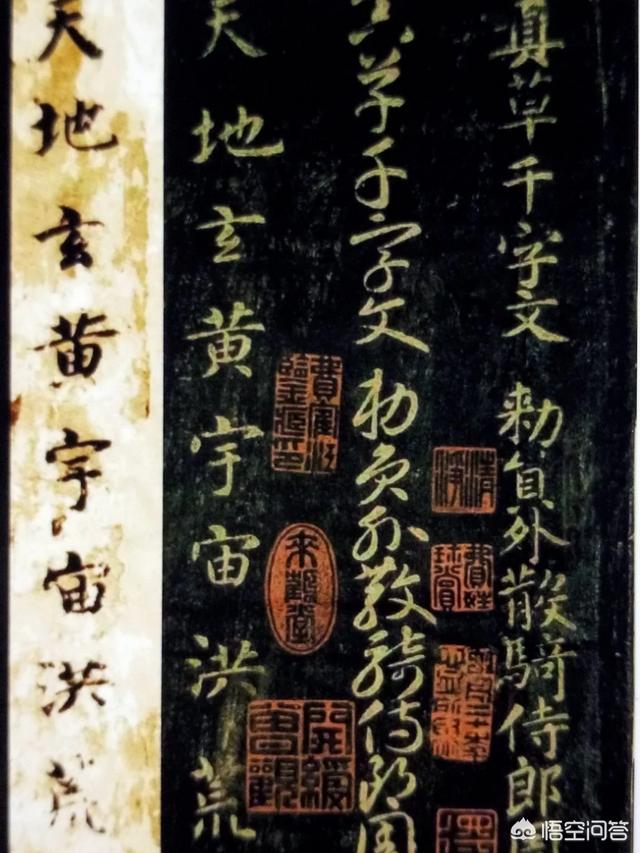 真草千字文 勅員外散騎侍郎周
真草千字文 勅員外散騎侍郎周
天地玄黄宇宙洪荒
天地玄黄宇宙洪荒
悟空问答